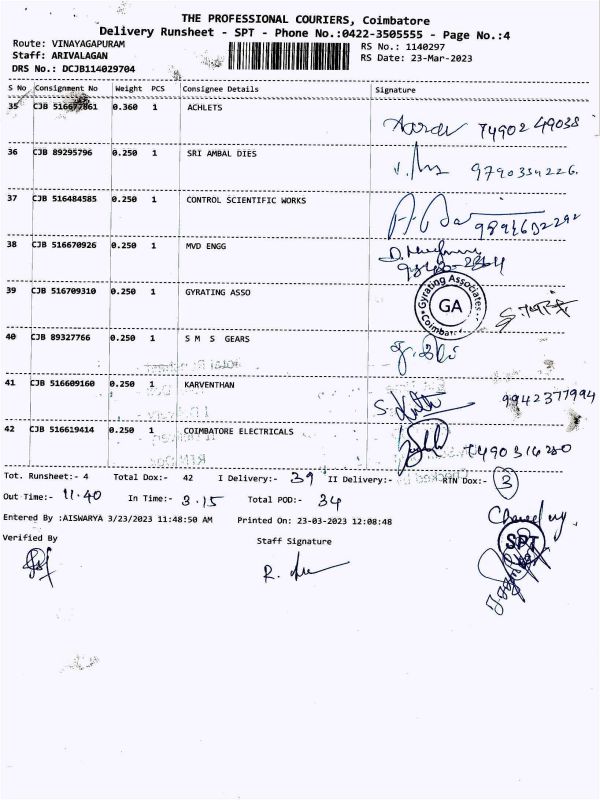 THE PROFESSIONAL COURIERS, Coimbatore
Delivery Runsheet - SPT - Phone No.:0422-3505555 - Page No.:4
Route: VINAYAGAPURAM RS No.: 1140297
Staff: ARIVALAGAN RS Date: 23-Mar-2023
DRS No.: DCJB114029704
S No Consignment No Weight PCS Consignee Details Signature
35 CJB 516677861 0.360 1 ACHLETS
36 CJB 89295796 0.250 1 SRI AMBAL DIES
37 CJB 516484585 0.250 1 CONTROL SCIENTIFIC WORKS
38 CJB 516670926 0.250 1 MVD ENGG
39 CJB 516709310 0.250 1 GYRATING ASSO Gyrating Associates GA Coimbatore
40 CJB 89327766 0.250 1 S M S GEARS
41 CJB 516609160 0.250 1 KARVENTHAN 9942377994
42 CJB 516619414 0.250 1 COIMBATORE ELECTRICALS
Tot. Runsheet:- 4 Total Dox:- 42 I Delivery:- 39 II Delivery:- RTN Dox:- 3
Out Time:- 11.40 In Time:- 3.15 Total POD:- 34
Entered By :AISWARYA 3/23/2023 11:48:50 AM Printed On: 23-03-2023 12:08:48
Verified By Staff Signature SPT